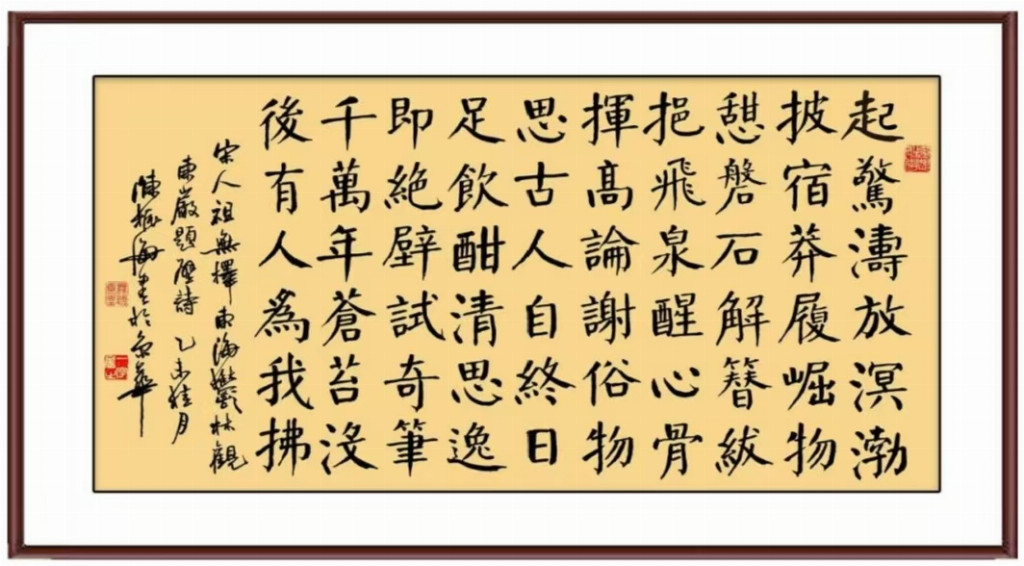 起驚濤放溟渤
披宿莽履崛物
憇磐石解簪紱
挹飛泉醒心骨
揮髙論謝俗物
思古人自終日
足飲酣清思逸
即絕壁試奇筆
千萬年蒼苔沒
後有人為我拂
宋人祖無擇東海鬱林觀
東巖題壁詩 乙未桂月
陳振海書於京華